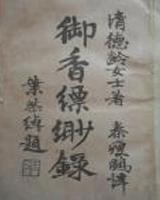 清德齡女士著
秦瘦鷗譯
御香縹緲錄
葉恭綽題